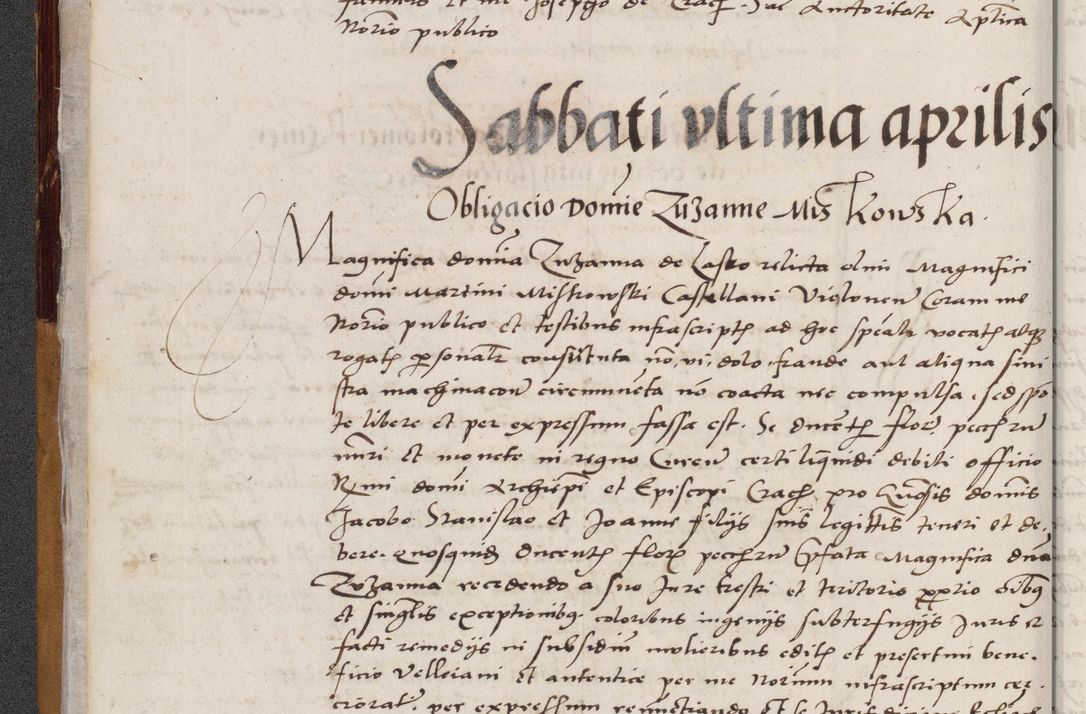 famulis et me Josepho de Crac. Sac. Auctoritate Aplica
Norio publico
Sabbati vltima aprilis
Obligacio Domie Zuzanne Miskowska.
Magnifica domia Zuzanna de Lasko relicta olim Magnifici
domi Martini Mistrowski Castellani Vielonen Coram me
Norio publico et testibus infrascriptis ad hoc spealr vocatis atque
rogatis personalr constituta no, vi, dolo, fraude aut aliqua sini
stra machinacone circumueta no coacta nec compulsa, sed spo
te libere et per expressum fassa est. Se ducentis flor pecchru
numeri et monete in regno Curen certi liquidi debiti officio
Rmi domi Archiepi et Episcopi Crac, pro Quosis domis
Jacobo Stanislao et Joanne filys suis legittis teneri et de
bere. quosquid ducentis flor pecchru prefata Magnifica dna
Zuzanna recedendo a suo Jure trestri et teritorio proprio oibus
et singlis exceptionibus coloribus ingenys subterfugys Juris et
facti remedys in subsidiu mulieribus editis et presertim bene
ficio Velleiani et autentice per me Norium infrascriptum cer
ciorat, per expressum renuctiando et se Jurisdicioni